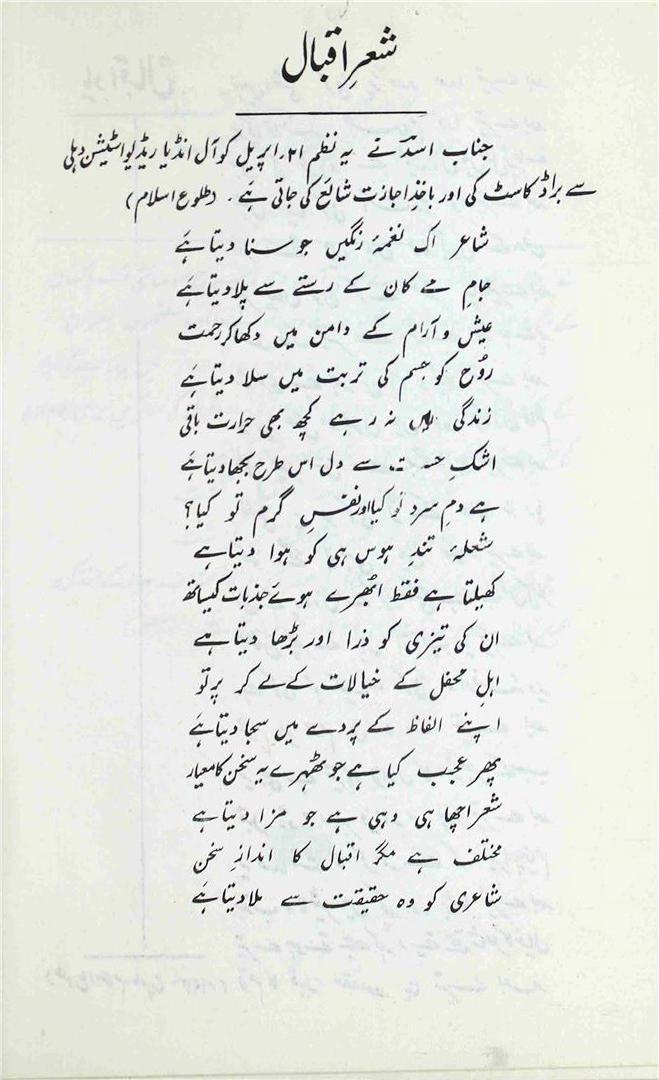 شعرِ اقبال
جناب اسدؔ نے یہ نظم ۲۱؍اپریل کو آل انڈیا ریڈیو اسٹیشن دہلی
سے براڈ کاسٹ کی اور باخذِ اجازت شائع کی جاتی ہے ۔ (طلوع اسلام)
شاعر اک نغمۂ رنگیں جو سنا دیتا ہے
جامِ مے کان کے رستے سے پلا دیتا ہے
عیش و آرام کے دامن میں دکھا کر رحمت
رُوح کو جسم کی تربت میں سلا دیتا ہے
زندگی میں نہ رہے کچھ بھی حرارت باقی
اشکِ سے دل اس طرح بجھا دیتا ہے
ہے دمِ سرد تو کیا اور نفسِ گرم تو کیا؟
شعلۂ تندِ ہوس ہی کو ہوا دیتا ہے
کھیلتا ہے فقط اُبھرے ہوئے جذبات کیساتھ
ان کی تیزی کو ذرا اور بڑھا دیتا ہے
اہلِ محفل کے خیالات کے لے کر پرتو
اپنے الفاظ کے پردے میں سجا دیتا ہے
پھر عجب کیا ہے جو ٹھہرے یہ سخن کا معیار
شعر اچھا ہی وہی ہے جو مزا دیتا ہے
مختلف ہے مگر اقبال کا اندازِ سخن
شاعری کو وہ حقیقت سے ملا دیتا ہے